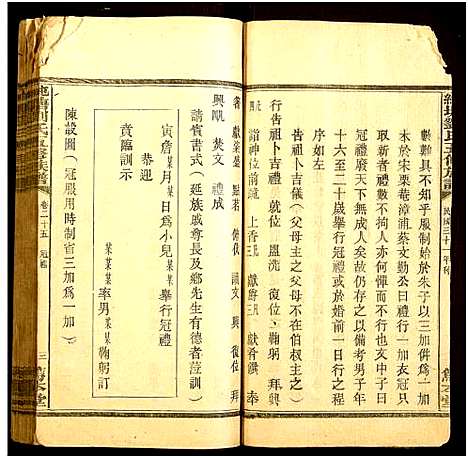 繫難具不知乎服制始於朱子以三加併為一加
未於宋栗菴漳浦蔡文勤公曰一加衣冠只
取新者禮數不拘人亦何憚而不行也文中子曰
冠禮廢天下無成人矣故仍存之以備考男子年
十六至二十歲舉行冠禮或於婚前一日行之儀
序如左
行告祖卜吉儀(父主之父母不在伯叔主之)
行告祖禮 就位 盥洗 復位 鞠躬 拜
詣神位前 跪 上香 獻爵 獻饌 奉
箸 獻羹 點茗 俯伏 讀文 興 復位 拜
興 焚文 禮畢
請賓書式(延族戚尊長及鄉先生有德者蒞訓)
寅詹某月某日為小兒某某舉行冠禮
恭迎
賁臨訓示
某某某率男某某鞠躬訂
陳設圖(冠服用時制省三加為一加)
卷二十五 冠禮
三
民國三十